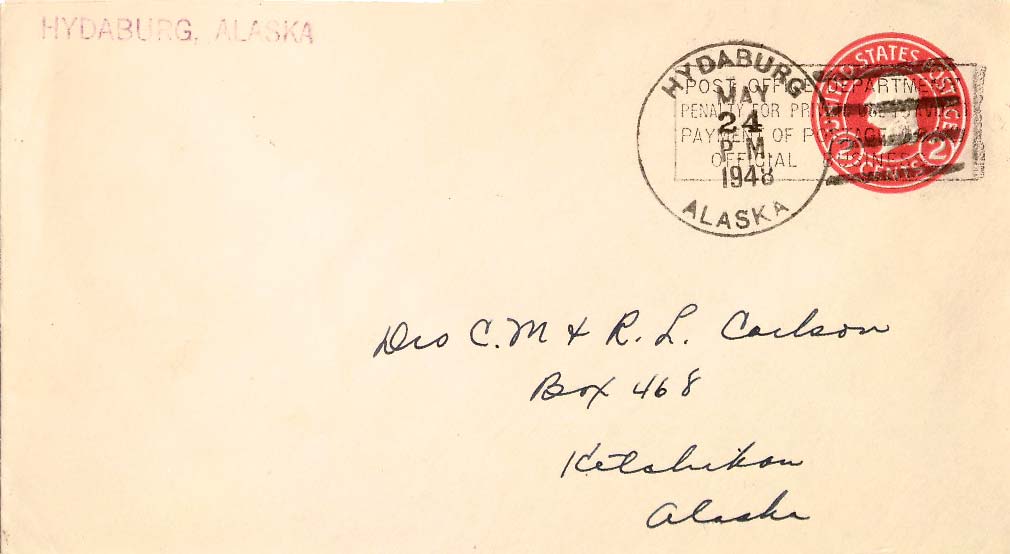 HYDABURG, ALASKA
HYDABURG
MAY
24
P M
1948
ALASKA
POST OFFICE DEPARTMENT
PENALTY FOR PRIVATE USE TO AVOID
PAYMENT OF POSTAGE
OFFICIAL BUSINESS
UNITED STATES POSTAGE
2 CENTS 2
Drs C. M & R. L. Carlson
Box 468
Ketchikan
Alaska